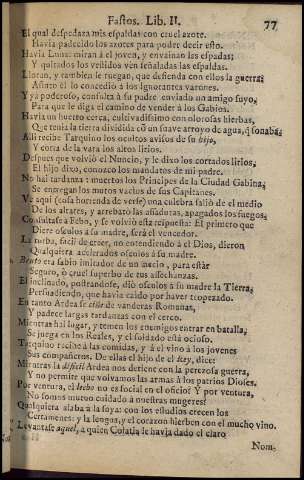 Fastos. Lib. II. 77
El qual despedaza mis espaldas con cruel azote.
Havia padecido los azotes para poder decir esto.
Havia Luna: miran á el joven, y envainan las espadas;
Y quitados los vestidos ven señaladas las espaldas.
Lloran, y tambien le ruegan, que defienda con ellos la guerra;
Astuto él lo concedió á los ignorantes varones.
Y yá poderoso, consulta á su padre enviado un amigo suyo,
Para que le diga el camino de vender á los Gabios.
Havia un huerto cerca, cultivadissimo con olorosas hierbas,
Que tenia la tierra dividida con un suave arroyo de agua, q̃ sonaba;
Alli recibe Tarquino los ocultos avisos de su hijo,
Y corta de la vara los altos lirios.
Despues que volvió el Nuncio, y le dixo los cortados lirios,
El hijo dixo, conozco los mandatos de mi padre.
No hai tardanza: muertos los Principes de la Ciudad Gabina;
Se entregan los muros vacios de sus Capitanes.
Ve aqui (cosa horrenda de verse) una culebra salió de el medio
De los altares, y arrebató las asaduras, apagados los fuegos,
Consultase a Febo, y se volvió esta respuesta: El primero que
Diere osculos á su madre, será el vencedor.
La turba, facil de creer, no entendiendo á el Dios, dieron
Qualquiera acelerados osculos á su madre.
Bruto era sabio imitador de un necio, para estár
Seguro, ò cruel soberbio de tus assechanzas.
El inclinado, postrandose, dió osculos á su madre la Tierra,
Persuadiendo, que havia caido por haver tropezado.
En tanto Ardea se ciñe de vanderas Romanas,
Y padece largas tardanzas con el cerco.
Mientras hai lugar, y temen los enemigos entrar en batalla,
Se juega en los Reales, y el soldado está ocioso.
Tarquino recibe á las comidas, y á el vino á los jovenes
Sus compañeros. De ellas el hijo de el Rey, dice:
Mientras la dificil Ardea nos detiene con la perezosa guerra,
Y no permite que volvamos las armas á los patrios Dioses.
Por ventura, el lecho no es social en el oficio? Y por ventura,
No somos mutuo cuidado á nuestras mugeres?
Qualquiera alaba á la suya: con los estudios crecen los
Certamenes: y la lengua, y el corazon hierben con el mucho vino.
Levantase aquel, a quien Colatia le havia dado el claro
Nom-